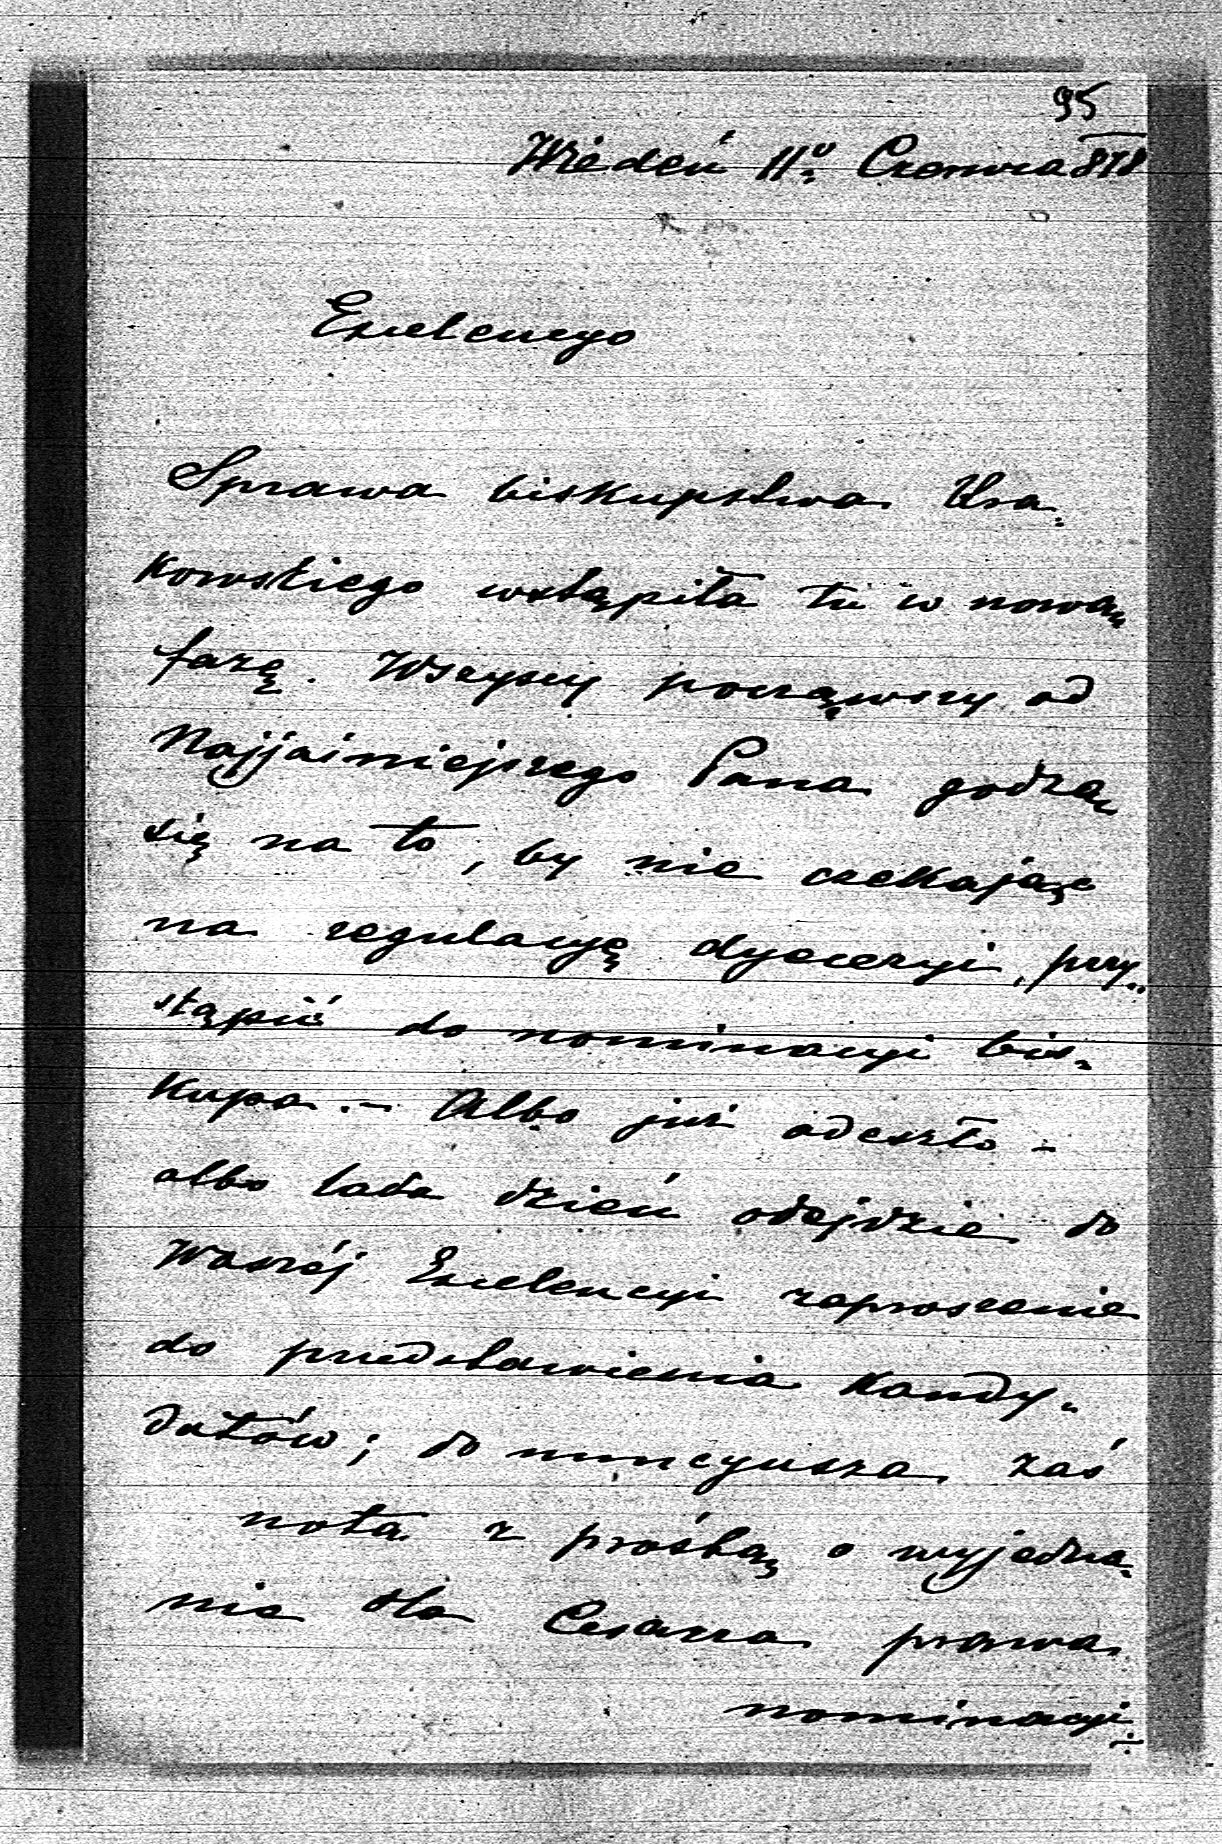 95
Wiedeń 11º Czerwca 878
Excelencyo
Sprawa biskupstwa Kra-
kowskiego wstąpiła tu w nową
fazę. Wszyscy począwszy od
Najjaśniejszego Pana godzą
się na to, by nie czekając
na regulacyę dyecezyi, przy-
stąpić do nominacyi bis-
kupa. – Albo już odeszło –
albo lada dzień odejdzie do
Waszéj Excelencyi zaproszenie
do przedstawienia kandy-
datów; do nuncyusza zaś
nota z prośbą o wyjedna-
nie dla Cesarza prawa
nominacyi.